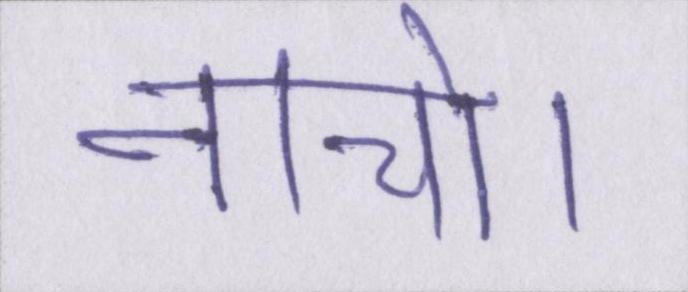 नाचो।